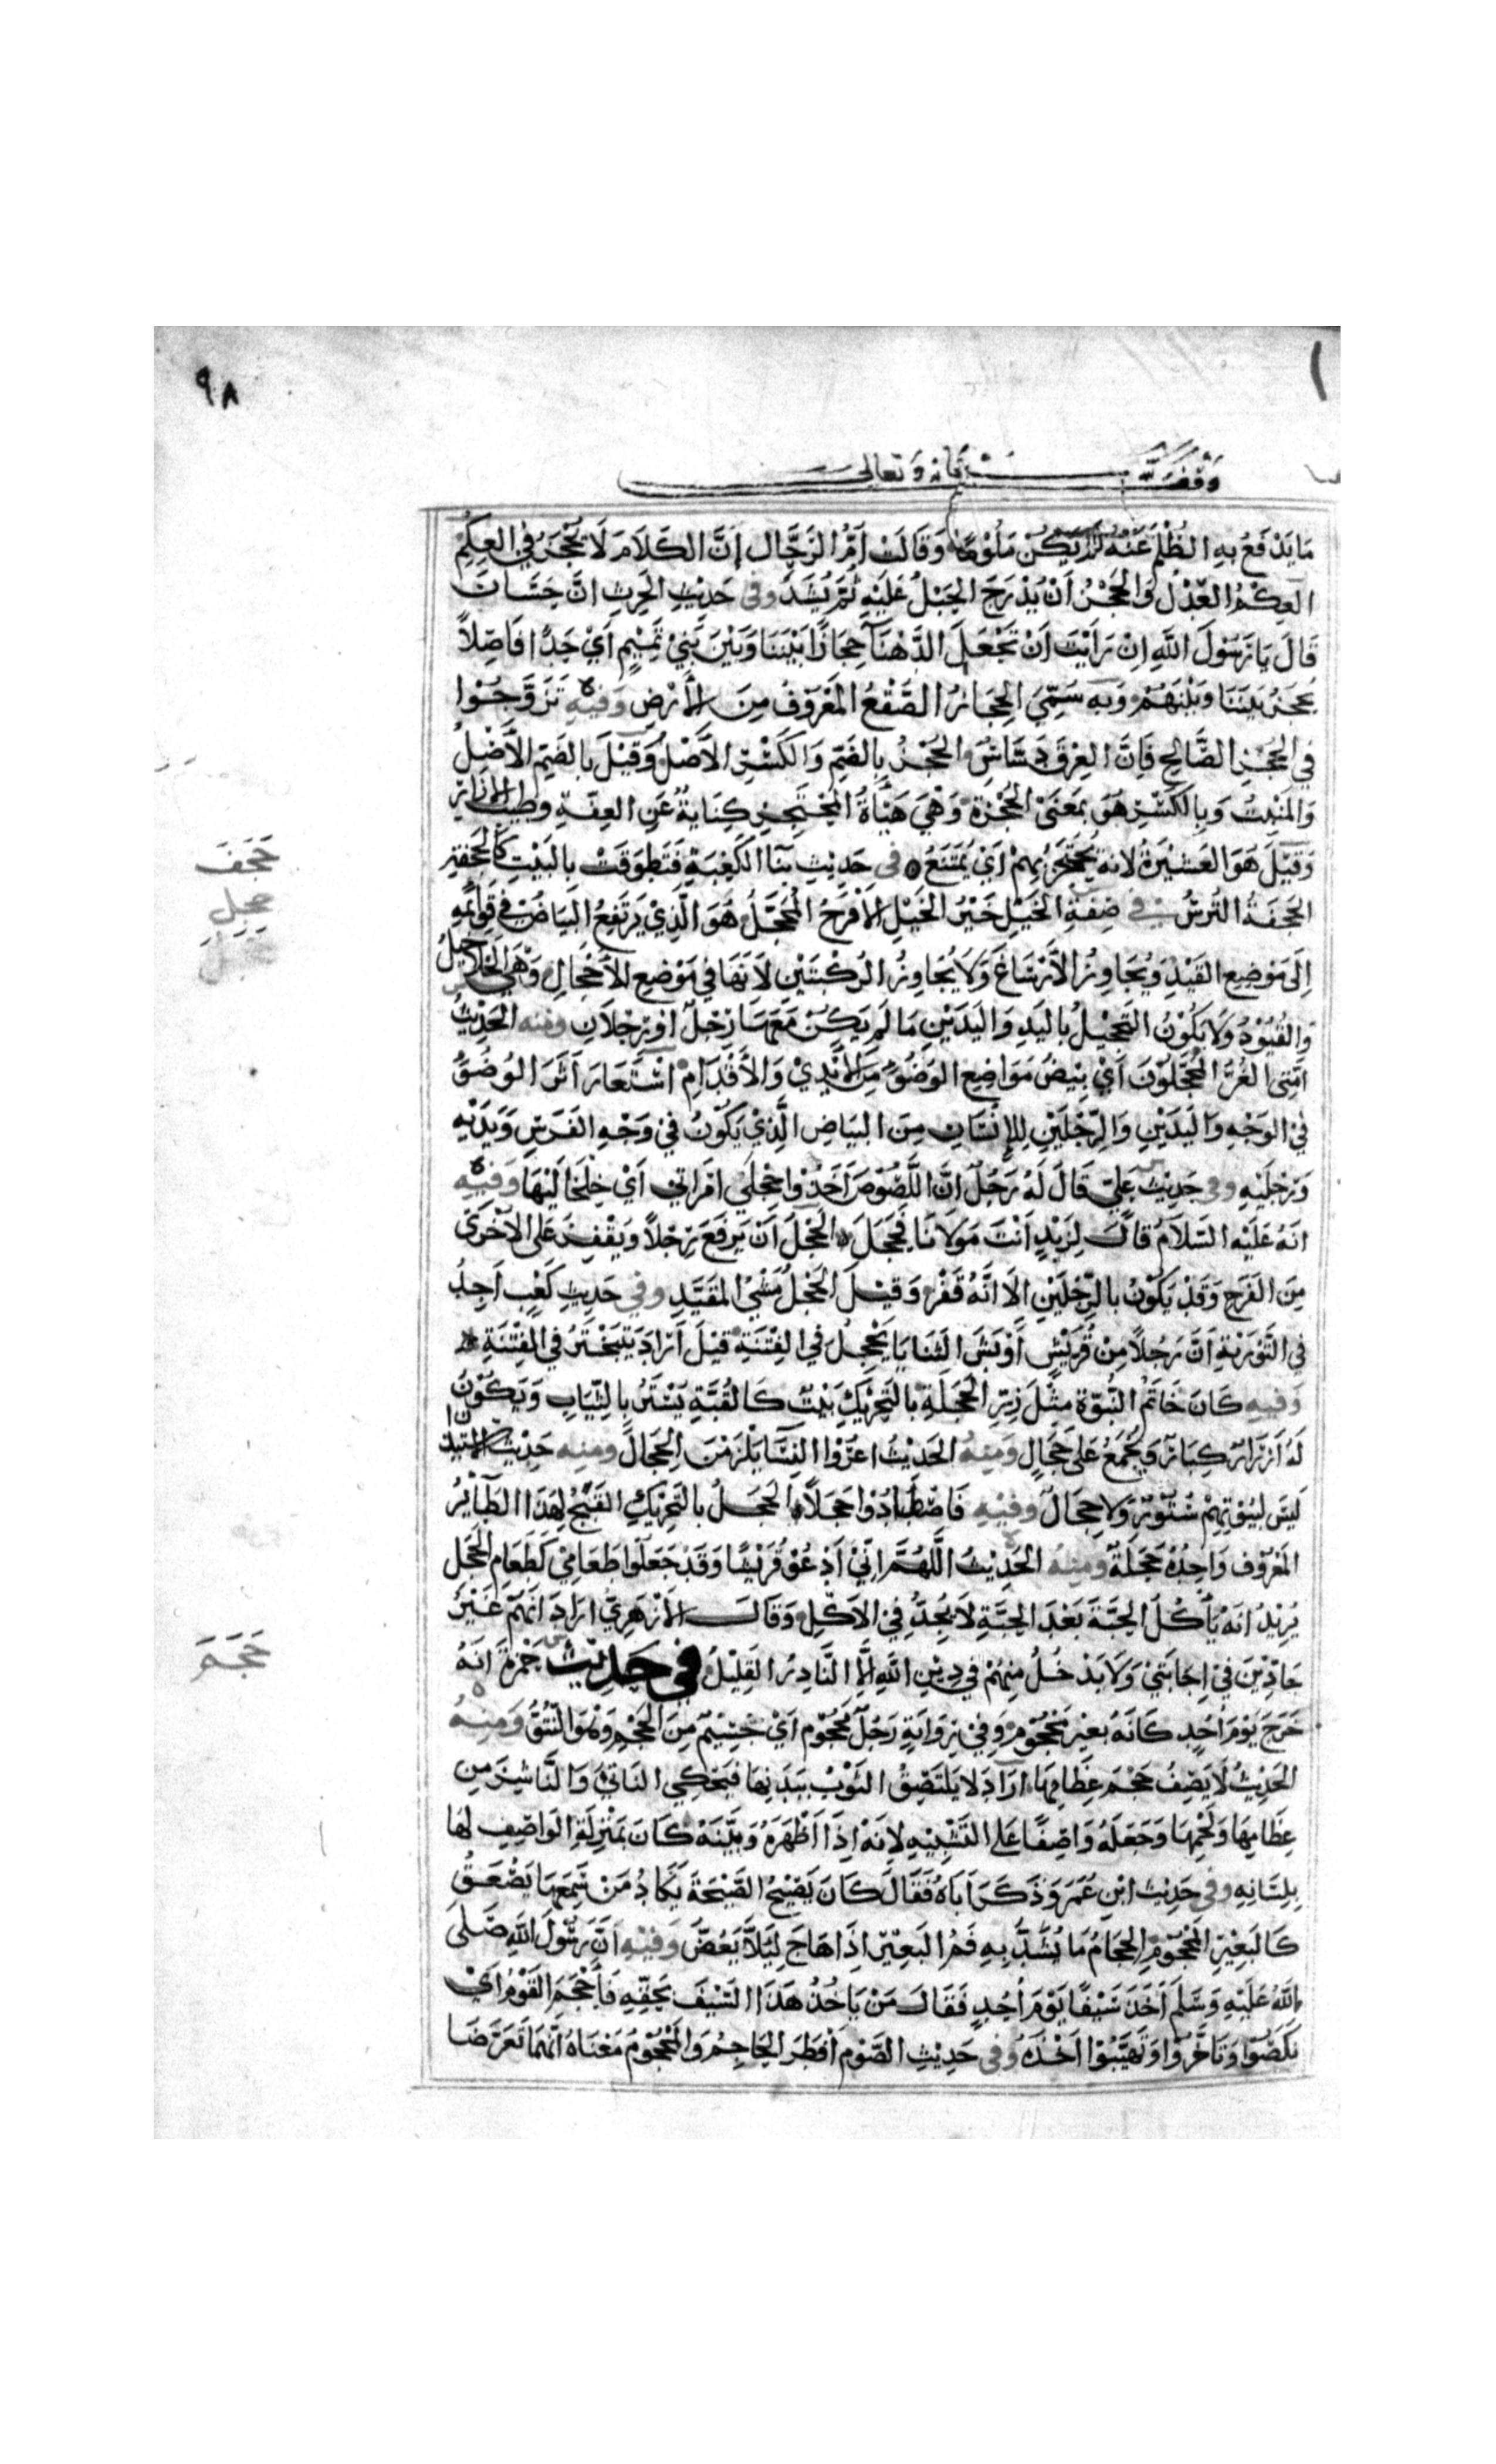 ٩٨
وقف لله سبحانه وتعالى
مَا يَدْفَعُ بِهِ الظُّلْمَ عَنْهُ لَمْ يَكُنْ مَلُومًا وَقَالَتْ أُمُّ الرَّحَّالِ إِنَّ الكَلَامَ لَا يُحْجَزُ فِي العِكْمِ
العِكْمُ العِدْلُ وَالحَجْزُ أَنْ يُدْرَجَ الحَبْلُ عَلَيْهِ ثُمَّ يُشَدَّ وفي حَدِيثِ الحَرِثِ انَّ حَسَّانَ
قَالَ يَا رَسُولَ اللَّهِ اِنْ رَأَيْتَ اَنْ تَجْعَلَ الدَّهْنَآ حِجَازًا بَيْنَنَا وَبَيْنَ بَنِيْ تَمِيْمٍ اَيْ حَدًّا فَاصِلًا
يَحْجَزُ بَيْنَنَا وَبَيْنَهُمْ وَبِهِ سُمِّيَ الحِجَازُ الصُّقْعُ المَعْرُوفُ مِنَ الأَرْضِ وَفِيْهِ تَزَوَّجُوا
فِي الحُجْزِ الصَّالِحِ فَاِنَّ العِرْقَ دَسَّاسٌ الحُجْزُ بِالضَّمِّ وَالكَسْرِ الاَصْلُ وَقِيْلَ بِالضَّمِّ الاَصْلُ
وَالمَنْبِتُ وَبِالكَسْرِ هُوَ بِمَعْنَى الحُجْزَةِ وَهِيَ هَيْأَةُ المُحْتَجِزِ كِنَايَةٌ عَنِ العِفَّةِ وَطِيْبِ الاِزَارِ
وَقِيْلَ هُوَ العَشِيْرَةُ لِاَنَّهُ يُحْتَجَزُ بِهِمْ اَيْ يُمْتَنَعُ في حَدِيثِ بِنَا الكَعْبَةِ فَتَطَوَّقَتْ بِالبَيْتِ كَالحَجَفَةِ
الحَجَفَةُ التُّرْسُ في صِفَةِ الخَيْلِ خَيْرُ الخَيْلِ الأَقْرَحُ المُحَجَّلُ هُوَ الَّذِيْ يَرْتَفِعُ البَيَاضُ فِي قَوَائِمِهِ
اِلَى مَوْضِعِ القَيْدِ وَيُجَاوِزُ الاَرْسَاغَ وَلَا يُجَاوِزُ الرُّكْبَتَيْنِ لِاَنَّهَا فِي مَوْضِعِ الاَحْجَالِ وَهِيَ الخَلَاخِيلُ
وَالقُيُوْدُ وَلَا يَكُوْنُ التَّحْجِيْلُ بِاليَدِ وَاليَدَيْنِ مَا لَمْ يَكُنْ مَعَهَا رِجْلٌ اَوْ رِجْلَانِ ومنه الحَدِيْثُ
اُمَّتِي الغُرُّ المُحَجَّلُوْنَ اَيْ بِيْضُ مَوَاضِعِ الوُضُوْ مِنَ الأَيْدِيْ وَالأَقْدَامِ اسْتَعَارَ اَثَرَ الوُضُوْ
فِي الوَجْهِ وَاليَدَيْنِ وَالرِّجْلَيْنِ لِلاِنْسَانِ مِنَ البَيَاضِ الَّذِيْ يَكُوْنُ فِي وَجْهِ الفَرَسِ وَيَدَيْهِ
وَرِجْلَيْهِ وفي حَدِيْثِ عَلِيّ قَالَ لَهُ رَجُلٌ اِنَّ اللُّصُوْصَ اَخَذُوا حِجْلَيِ امْرَاتِي اَيْ خَلْخَالَيْهَا وَفِيْهِ
انَّهُ عَلَيْهِ السَّلَامُ قَالَ لِزَيْدٍ اَنْتَ مَوْلَانَا فَحَجَلَ الحَجْلُ اَنْ يَرْفَعَ رِجْلاً وَيَقْفِزَ عَلَى الاُخْرَى
مِنَ الفَرَحِ وَقَدْ يَكُوْنُ بِالرِّجْلَيْنِ اِلَّا اَنَّهُ قَفْزٌ وَقِيْلَ الحَجْلُ مَشْيُ المُقَيَّدِ وفي حَدِيثِ كَعْبٍ اَجِدُ
فِي التَّوْرَيةِ اَنَّ رَجُلًا مِنْ قُرَيْشٍ اَوْبَشَ الثَّنَايَا يَحْجِلُ فِي الفِتْنَةِ قِيْلَ اَرَادَ يَتَبَخْتَرُ فِي الفِتْنَةِ
وَفِيْهِ كَانَ خَاتَمُ النُّبُوَّةِ مِثْلَ زِرِّ الحَجَلَةِ بِالتَّحْرِيْكِ بَيْتٌ كَالقُبَّةِ يُسْتَرُ بِالثِّيَابِ وَيَكُوْنُ
لَهُ اَزْرَارٌ كِبَارٌ وَيُجْمَعُ عَلَى حِجَالٍ وَمِنْهُ الحَدِيْثُ اعْرُوا النِّسَا يَلْزَمْنَ الحِجَالَ ومنه حَدِيْثُ الاستيذان
لَيْسَ لِبُيُوْتِهِمْ سُتُوْرٌ وَلَا حِجَالٌ وفيْهِ فَاصْطَادُوْا حَجَلًا الحَجَلُ بِالتَّحْرِيْكِ القَبْجُ لِهَذَا الطَّائِرِ
المَعْرُوْفِ وَاحِدُهُ حَجَلَةٌ وَمِنْهُ الحَدِيْثُ اللَّهُمَّ اِنِّيْ اَدْعُوْ قُرَيْشًا وَقَدْ جَعَلُوا طَعَامِيْ كَطَعَامِ الحَجَلِ
يُرِيْدُ اَنَّهُ يَأْكُلُ الحَبَّةَ بَعْدَ الحَبَّةِ لَا يَجِدُّ فِي الاَكْلِ وَقَالَ الأَزْهَرِيُّ اَرَادَ اَنَّهُمْ غَيْرُ
جَادِّيْنَ فِي اِجَابَتِيْ وَلَا يَدْخُلُ مِنْهُمْ فِي دِيْنِ اللَّهِ اِلَّا النَّادِرُ القَلِيْلُ في حَدِيْثِ حَمْزَةَ اَنَّهُ
خَرَجَ يَوْمَ اُحُدٍ كَانَّهُ بَعِيْرٌ مَحْجُوْمٌ وَفِيْ رِوَايَةٍ رَجُلٌ مَحْجُوْمٌ اَيْ جَسِيْمٌ مِنَ الحَجْمِ وَهُوَ النُّتُوُّ وَمِنْهُ
الحَدِيْثُ لَا يَصِفُ حَجْمَ عِظَامِهَا اَرَادَ لَا يَلْتَصِقُ الثَّوْبُ بِبَدَنِهَا فَيَحْكِي النَّاتِئَ وَالنَّاشِزَ مِنْ
عِظَامِهَا وَلَحْمِهَا وَجَعَلَهُ وَاصِفًا عَلَى التَّشْبِيْهِ لِاَنَّهُ اِذَا اَظْهَرَهُ وَبَيَّنَهُ كَانَ بِمَنْزِلَةِ الوَاصِفِ لَهَا
بِلِسَانِهِ وفي حَدِيْثِ ابْنِ عُمَرَ وَذَكَرَ اَبَاهُ فَقَالَ كَانَ يَصِيْحُ الصَّيْحَةَ يَكَادُ مَنْ سَمِعَهَا يُصْعَقُ
كَالبَعِيْرِ المَحْجُوْمِ الحِجَامُ مَا يُشَدُّ بِهِ فَمُ البَعِيْرِ اِذَا هَاجَ لِيَلَّا يَعُضَّ وَفِيْهِ اَنَّ رَسُوْلَ اللَّهِ صَلَّى
اللَّهُ عَلَيْهِ وَسَلَّمَ اَخَذَ سَيْفًا يَوْمَ اُحُدٍ فَقَالَ مَنْ يَاخُذُ هَذَا السَّيْفَ بِحَقِّهِ فَاَحْجَمَ القَوْمُ اَيْ
نَكَصُوْا وَتَاخَّرُوْا وَتَهَيَّبُوْا اَخْذَهُ وفي حَدِيْثِ الصَّوْمِ اَفْطَرَ الحَاجِمُ وَالمَحْجُوْمُ مَعْنَاهُ اَنَّهُمَا تَعَرَّضَا
حَجَفَ
حجل
حَجَمَ